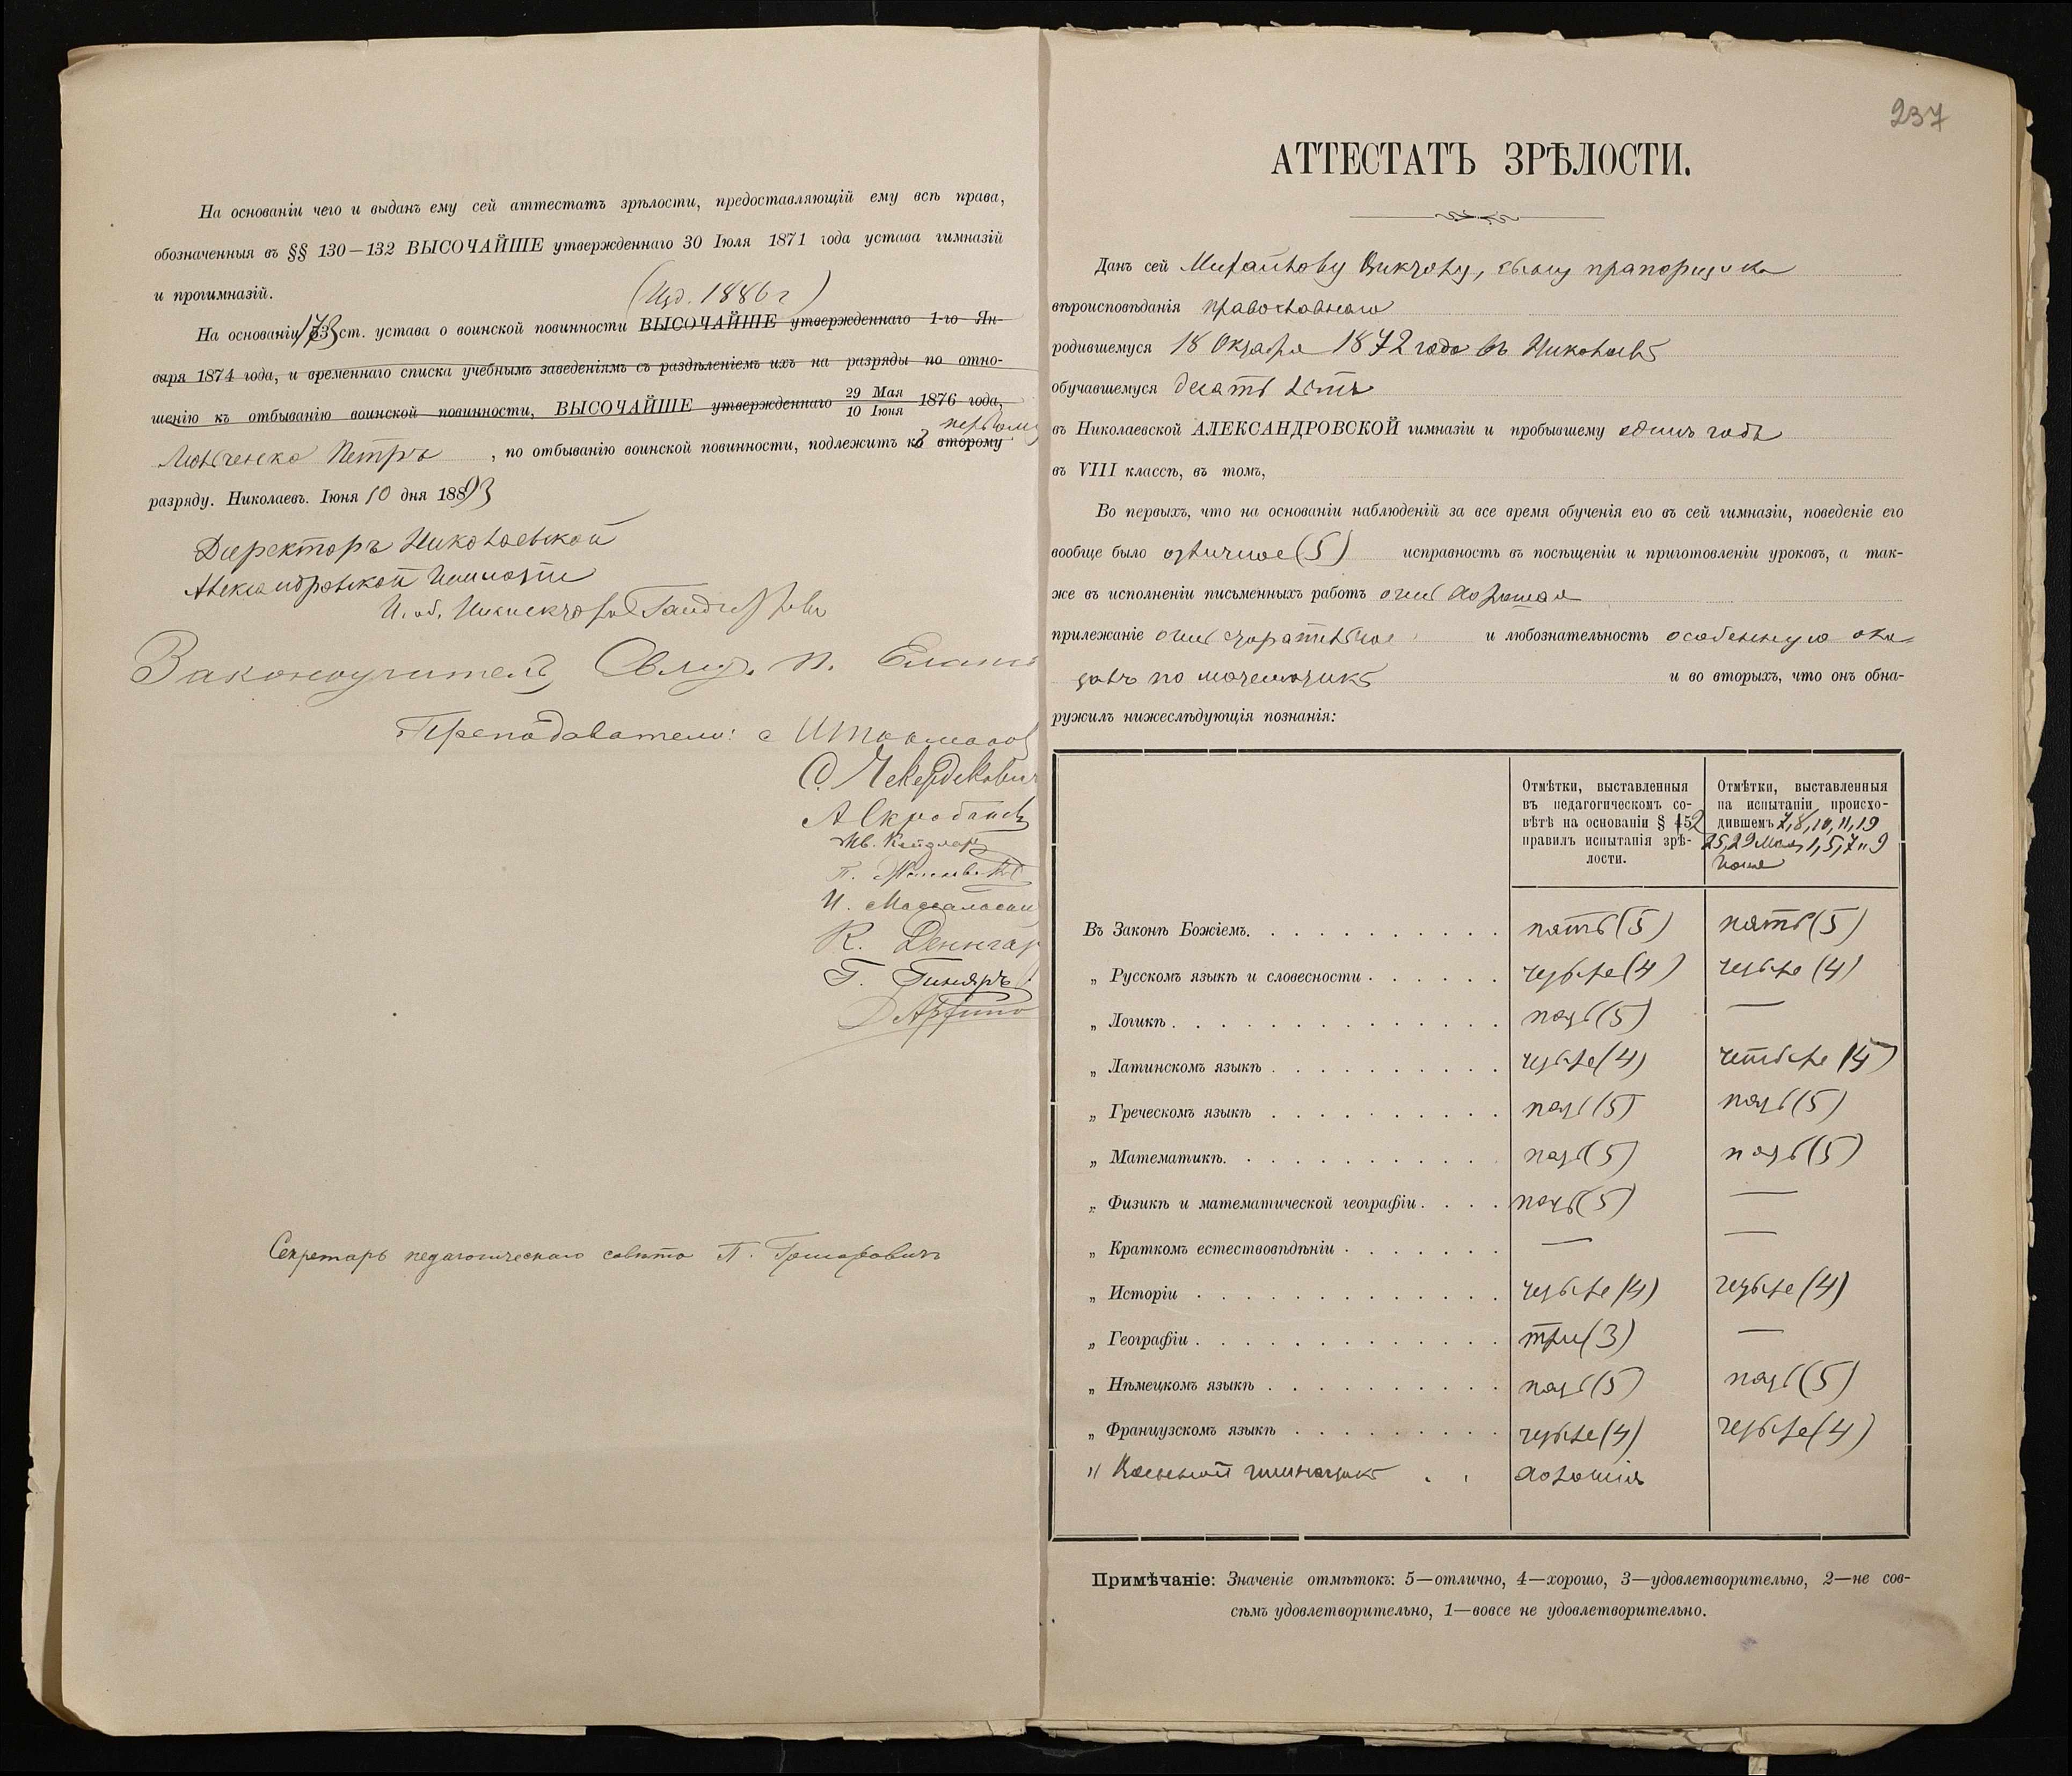 На основаніи чего и выданъ ему сей аттестатъ зрѣлости, предоставляющій ему всѣ права,
обозначенныя въ §§ 130—132 ВЫСОЧАЙШЕ утвержденнаго 30 Іюля 1871 года устава гимназій
и прогимназій.
(Изд. 1886 г)
На основаніи 173 ст. устава о воинской повинности ВЫСОЧАЙШЕ утвержденнаго 1-го Ян-
варя 1874 года, и временнаго списка учебнымъ заведеніямъ съ раздѣленіемъ ихъ на разряды по отно-
шенію къ отбыванію воинской повинности, ВЫСОЧАЙШЕ утвержденнаго 29 Мая / 10 Іюня 1876 года,
первому
Петръ , по отбыванію воинской повинности, подлежитъ ко второму
разряду. Николаевъ. Іюня 10 дня 1893
Директоръ Николаевской
Александровской Гимназіи
И. об. Инспектора
Законоучитель, Свящ. П.
Преподаватели:
С.
А
Ив.
П.
И.
К.
Г.
Секретарь педагогическаго совѣта П.
237
АТТЕСТАТЪ ЗРѢЛОСТИ.
Данъ сей Михайлову Виктору, сыну прапорщика
вѣроисповѣданія православнаго
родившемуся 18 Октября 1872 года въ Николаевѣ
обучавшемуся десять лѣтъ
въ Николаевской АЛЕКСАНДРОВСКОЙ гимназіи и пробывшему одинъ годъ
въ VIII классѣ, въ томъ,
Во первыхъ, что на основаніи наблюденій за все время обученія его въ сей гимназіи, поведеніе его
вообще было отличное (5) исправность въ посѣщеніи и приготовленіи уроковъ, а так-
же въ исполненіи письменныхъ работъ очень хорошая
прилежаніе очень старательное и любознательность особенную ока-
залъ по математикѣ и во вторыхъ, что онъ обна-
ружилъ нижеслѣдующія познанія:
Отмѣтки, выставленныя въ педагогическомъ со-вѣтѣ на основаніи § 52 правилъ испытанія зрѣ-лости.
Отмѣтки, выставленныя на испытаніи происхо-дившемъ 7, 8, 10, 11, 19 25, 29 Мая, 1, 5, 7 и 9 Іюня
Въ Законѣ Божіемъ. пять (5) пять (5)
„ Русскомъ языкѣ и словесности четыре (4) четыре (4)
„ Логикѣ пять (5) —
„ Латинскомъ языкѣ четыре (4) четыре (4)
„ Греческомъ языкѣ пять (5) пять (5)
„ Математикѣ. пять (5) пять (5)
„ Физикѣ и математической географіи пять (5) —
„ Краткомъ естествовѣдѣніи — —
„ Исторіи четыре (4) четыре (4)
„ Географіи три (3) —
„ Нѣмецкомъ языкѣ пять (5) пять (5)
„ Французскомъ языкѣ четыре (4) четыре (4)
„ Военной гимнастикѣ хорошія
Примѣчаніе: Значеніе отмѣтокъ: 5—отлично, 4—хорошо, 3—удовлетворительно, 2—не сов-
сѣмъ удовлетворительно, 1—вовсе не удовлетворительно.